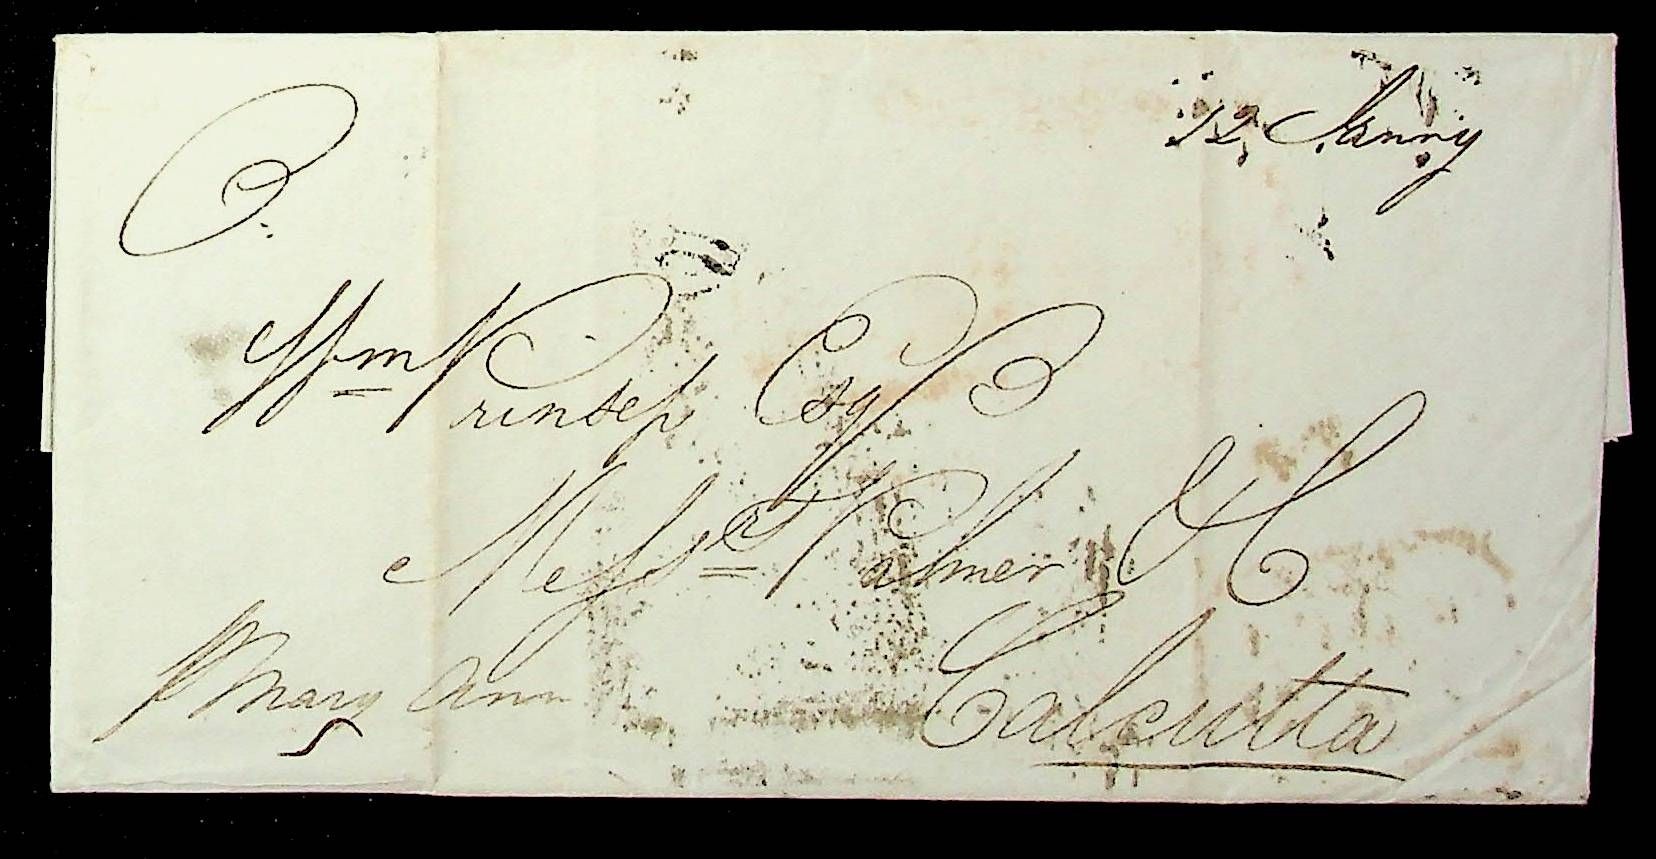 12 Janry
Wm Prinsep Esqr
Messrs Palmer & Co
Calcutta
p Mary Ann